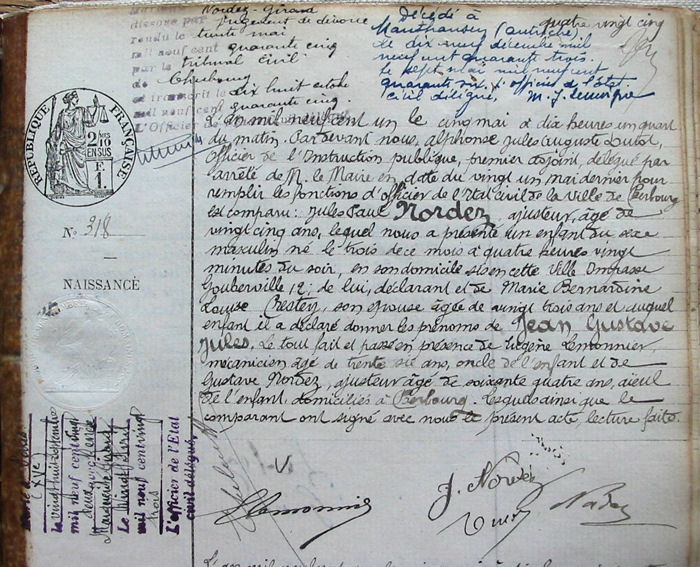 Nordez - Girard
dissous par jugement de divorce
rendu le trente mai
mil neuf cent quarante cinq
par le tribunal civil
de Cherbourg
et transcrit le dix huit octobre
mil neuf cent quarante cinq
L'Officier de
Décédé à
Mauthausen (Autriche)
le dix neuf décembre mil
neuf cent quarante trois.
Le sept mai mil neuf cent
quarante six. L'officier de l'état
civil délégué,
quatre vingt cinq
RÉPUBLIQUE FRANÇAISE
2/10
EN SUS
F
1.
No 318
NAISSANCE
L'an mil neuf cent un le cinq mai à dix heures un quart
du matin. Par devant nous, Alphonse Jules Auguste
Officier de l'Instruction publique, premier adjoint, délégué par
arrêté de M. le Maire en date du vingt un mai dernier pour
remplir les fonctions d'officier de l'Etat civil de la ville de Cherbourg
est comparu: Jules Paul Nordez, ajusteur, âgé de
vingt cinq ans, lequel nous a présenté un enfant du sexe
masculin né le trois de ce mois à quatre heures vingt
minutes du soir, en son domicile sis en cette ville Impasse
Gouberville 12; de lui, déclarant et de Marie Bernardine
Louise Crestey, son épouse âgée de vingt trois ans et auquel
enfant il a déclaré donner les prénoms de Jean Gustave
Jules. Le tout fait et passé en présence de Eugène Lemonnier,
mécanicien âgé de trente six ans, oncle de l'enfant et de
Gustave Nordez, ajusteur âgé de soixante quatre ans, aïeul
de l'enfant domiciliés à Cherbourg. Lesquels ainsi que le
comparant ont signé avec nous le présent acte, lecture faite.
le vingt huit septembre
mil neuf cent vingt
Marguerite Girard
Le vingt
mil neuf cent vingt
trois
L'officier de l'Etat
civil délégué,
Lemonnier
J. Nordez
Nordez